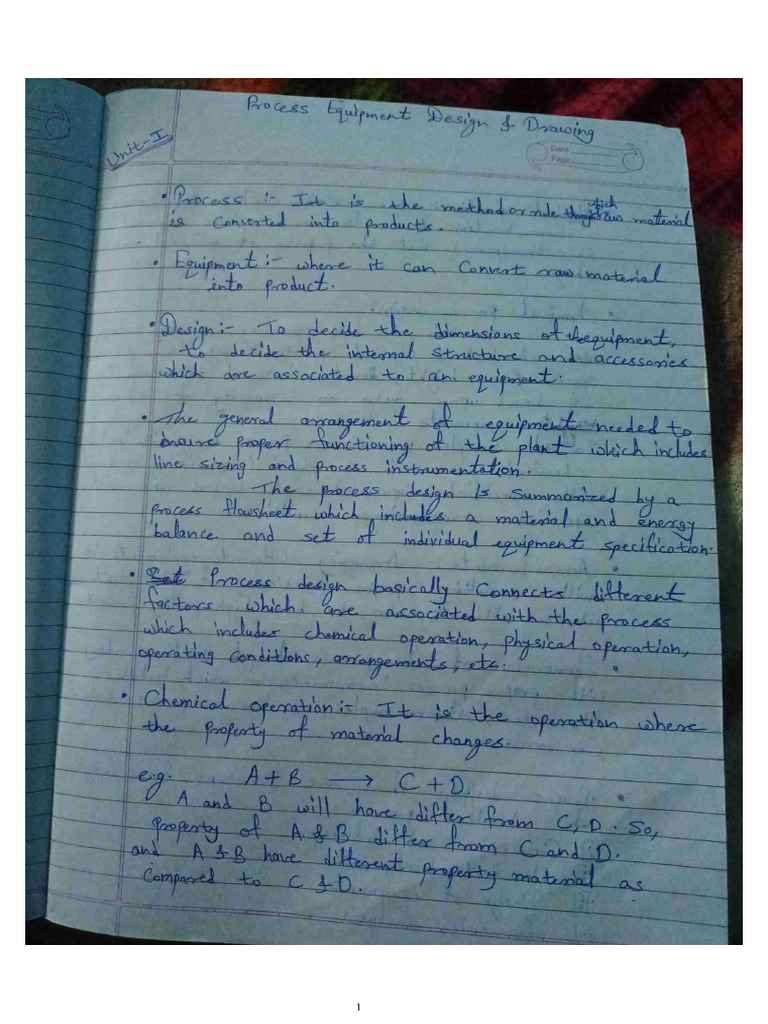 Process Equipment Design & Drawing
Unit-I
Date
Page
• Process :- It is the method or rule through which raw material
is converted into products.
• Equipment :- where it can Convert raw material
into product.
• Design :- To decide the dimensions of the equipment,
to decide the internal structure and accessories
which are associated to an equipment.
• The general arrangement of equipment needed to
ensure proper functioning of the plant which includes
line sizing and process instrumentation.
The process design Is summarized by a
process flowsheet which includes a material and energy
balance and set of individual equipment specification.
• Set Process design basically Connects different
factors which are associated with the process
which includes chemical operation, physical operation,
operating conditions, arrangements, etc.
• Chemical operation :- It is the operation where
the property of material changes.
e.g. A + B → C + D.
A and B will have differ from C, D. So,
property of A & B differ from C and D.
and A & B have different property material as
compared to C & D.
1